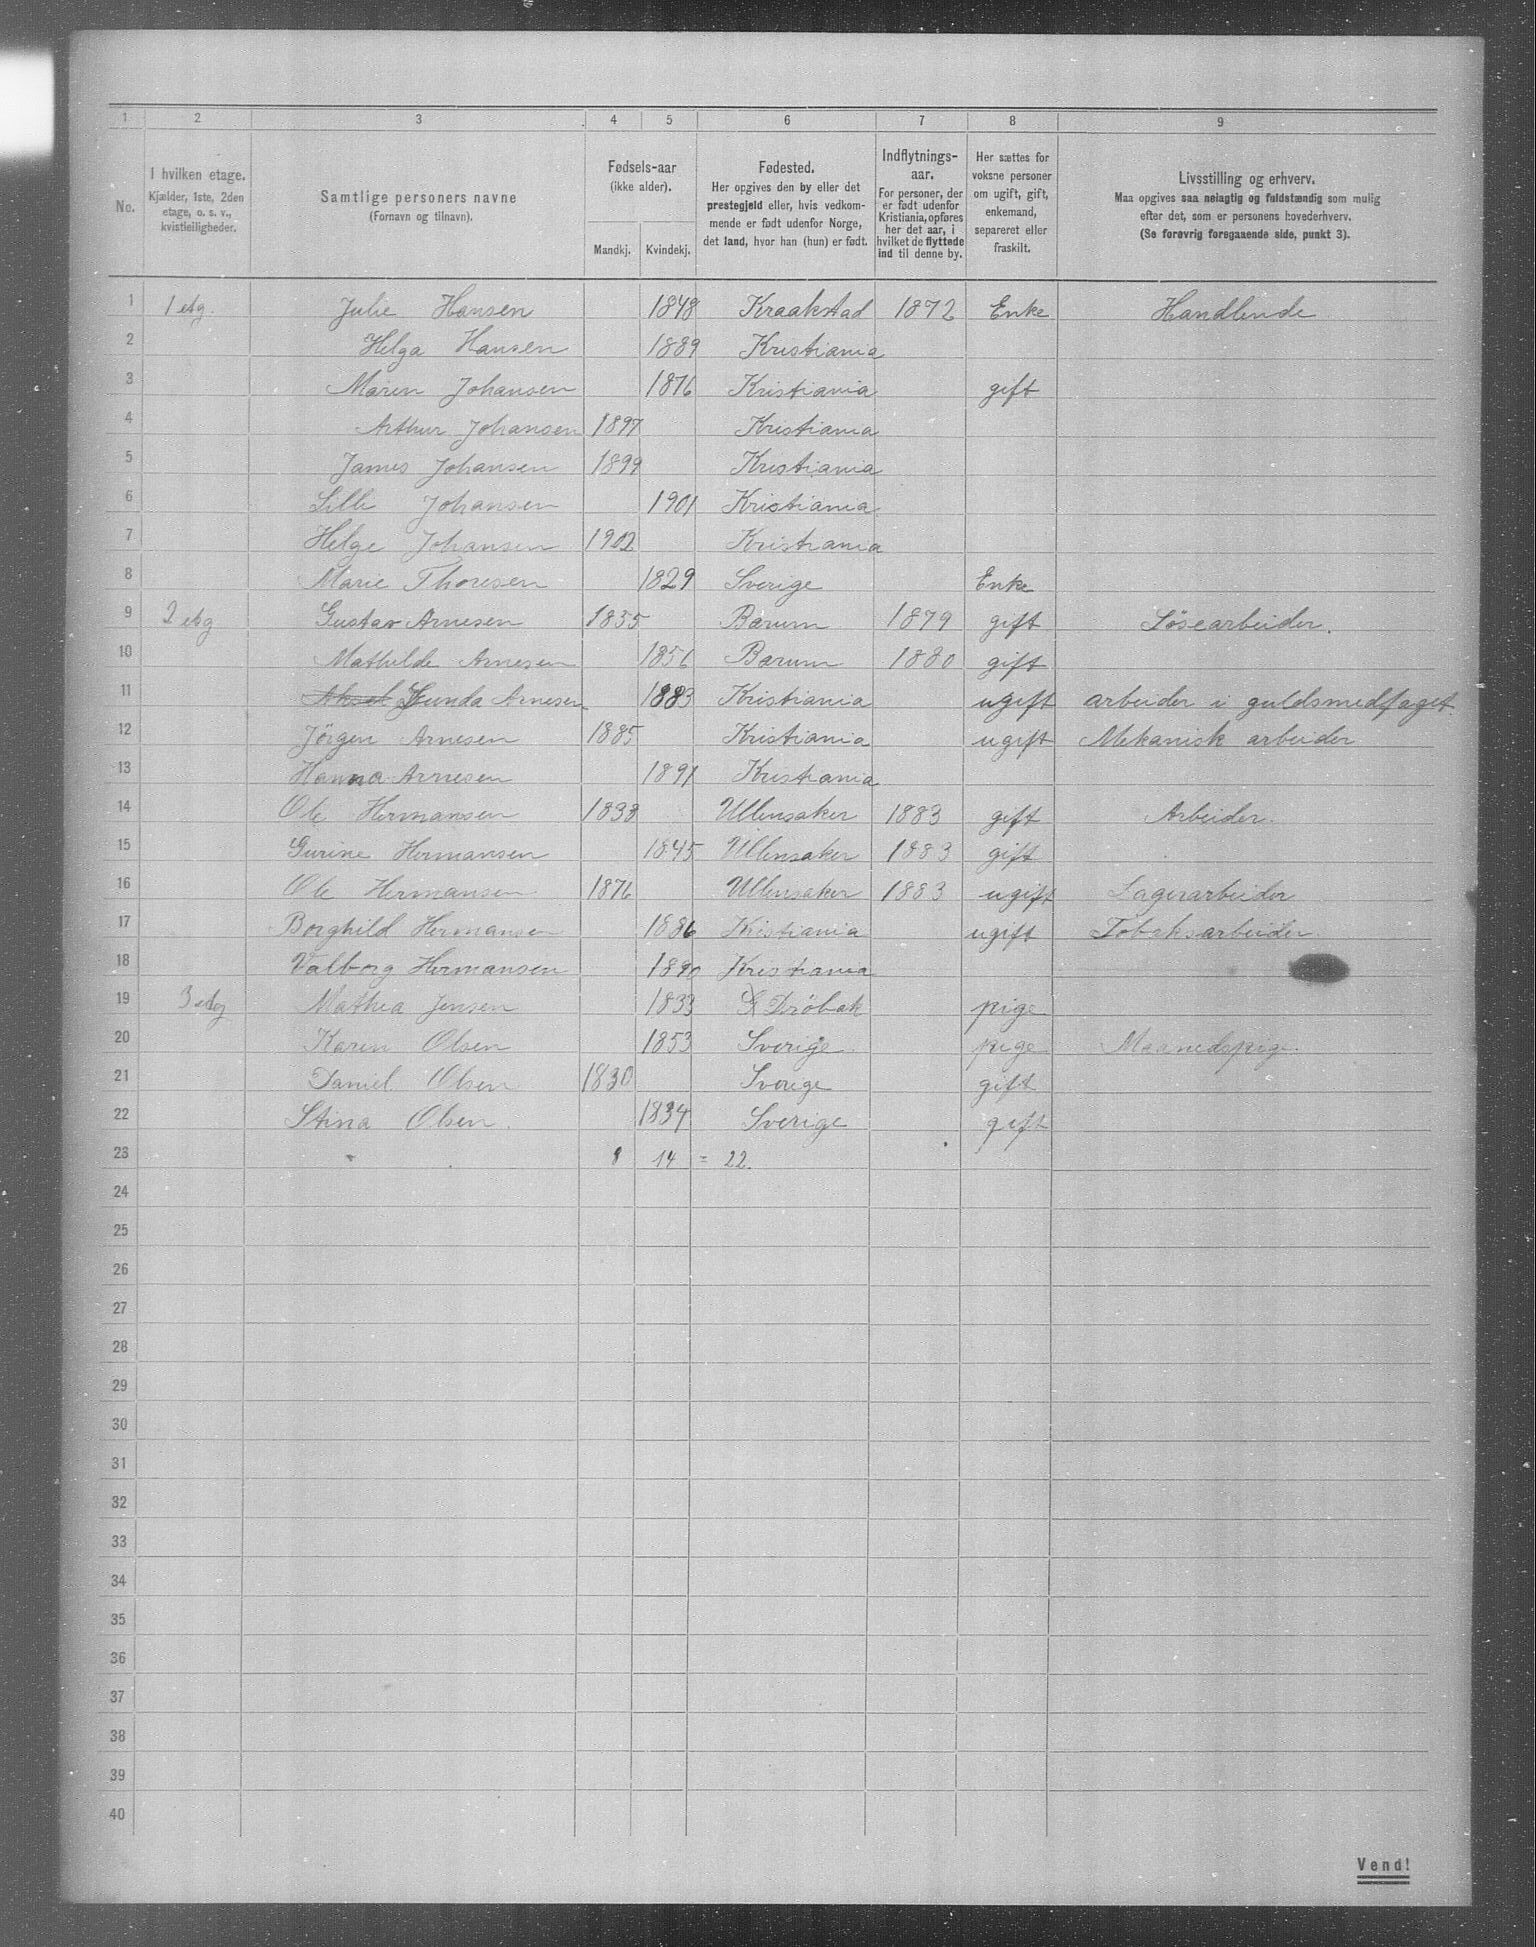 1 2 3 4 5 6 7 8 9
No.
I hvilken etage.
Kjælder, 1ste, 2den
etage, o. s. v.,
kvistleiligheder.
Samtlige personers navne
(Fornavn og tilnavn).
Fødsels-aar
(ikke alder).
Mandkj. Kvindekj.
Fødested.
Her opgives den by eller det
prestegjeld eller, hvis vedkom-
mende er født udenfor Norge,
det land, hvor han (hun) er født.
Indflytnings-
aar.
For personer, der
er født udenfor
Kristiania, opføres
her det aar, i
hvilket de flyttede
ind til denne by.
Her sættes for
voksne personer
om ugift, gift,
enkemand,
separeret eller
fraskilt.
Livsstilling og erhverv.
Maa opgives saa nøiagtig og fuldstændig som mulig
efter det, som er personens hovederhverv.
(Se forøvrig foregaaende side, punkt 3).
1 1 etg. Julie Hansen 1848 Kraakstad 1872 Enke Handlende
2 Helga Hansen 1889 Kristiania
3 Maren Johansen 1876 Kristiania gift
4 Arthur Johansen 1897 Kristiania
5 James Johansen 1899 Kristiania
6 Lilli Johansen 1901 Kristiania
7 Helge Johansen 1902 Kristiania
8 Marie Thoresen 1829 Sverige Enke
9 2 etg Gustav Arnesen 1855 Bærum 1879 gift Løsearbeider.
10 Mathilde Arnesen 1856 Bærum 1880 gift
11 Aksel Gunda Arnesen 1883 Kristiania ugift arbeider i guldsmedfaget.
12 Jörgen Arnesen 1885 Kristiania ugift Mekanisk arbeider
13 Hanna Arnesen 1891 Kristiania
14 Ole Hermansen 1838 Ullensaker 1883 gift Arbeider.
15 Gurine Hermansen 1845 Ullensaker 1883 gift
16 Ole Hermansen 1876 Ullensaker 1883 ugift Lagerarbeider
17 Borghild Hermansen 1886 Kristiania ugift Tobaksarbeider.
18 Valborg Hermansen 1890 Kristiania
19 3 etg Mathea Jensen 1833 Dröbak pige
20 Karen Olsen 1853 Sverige pige Maanedspige.
21 Daniel Olsen 1830 Sverige gift
22 Stina Olsen. 1834 Sverige gift
23 8 14 = 22.
24
25
26
27
28
29
30
31
32
33
34
35
36
37
38
39
40
Vend!